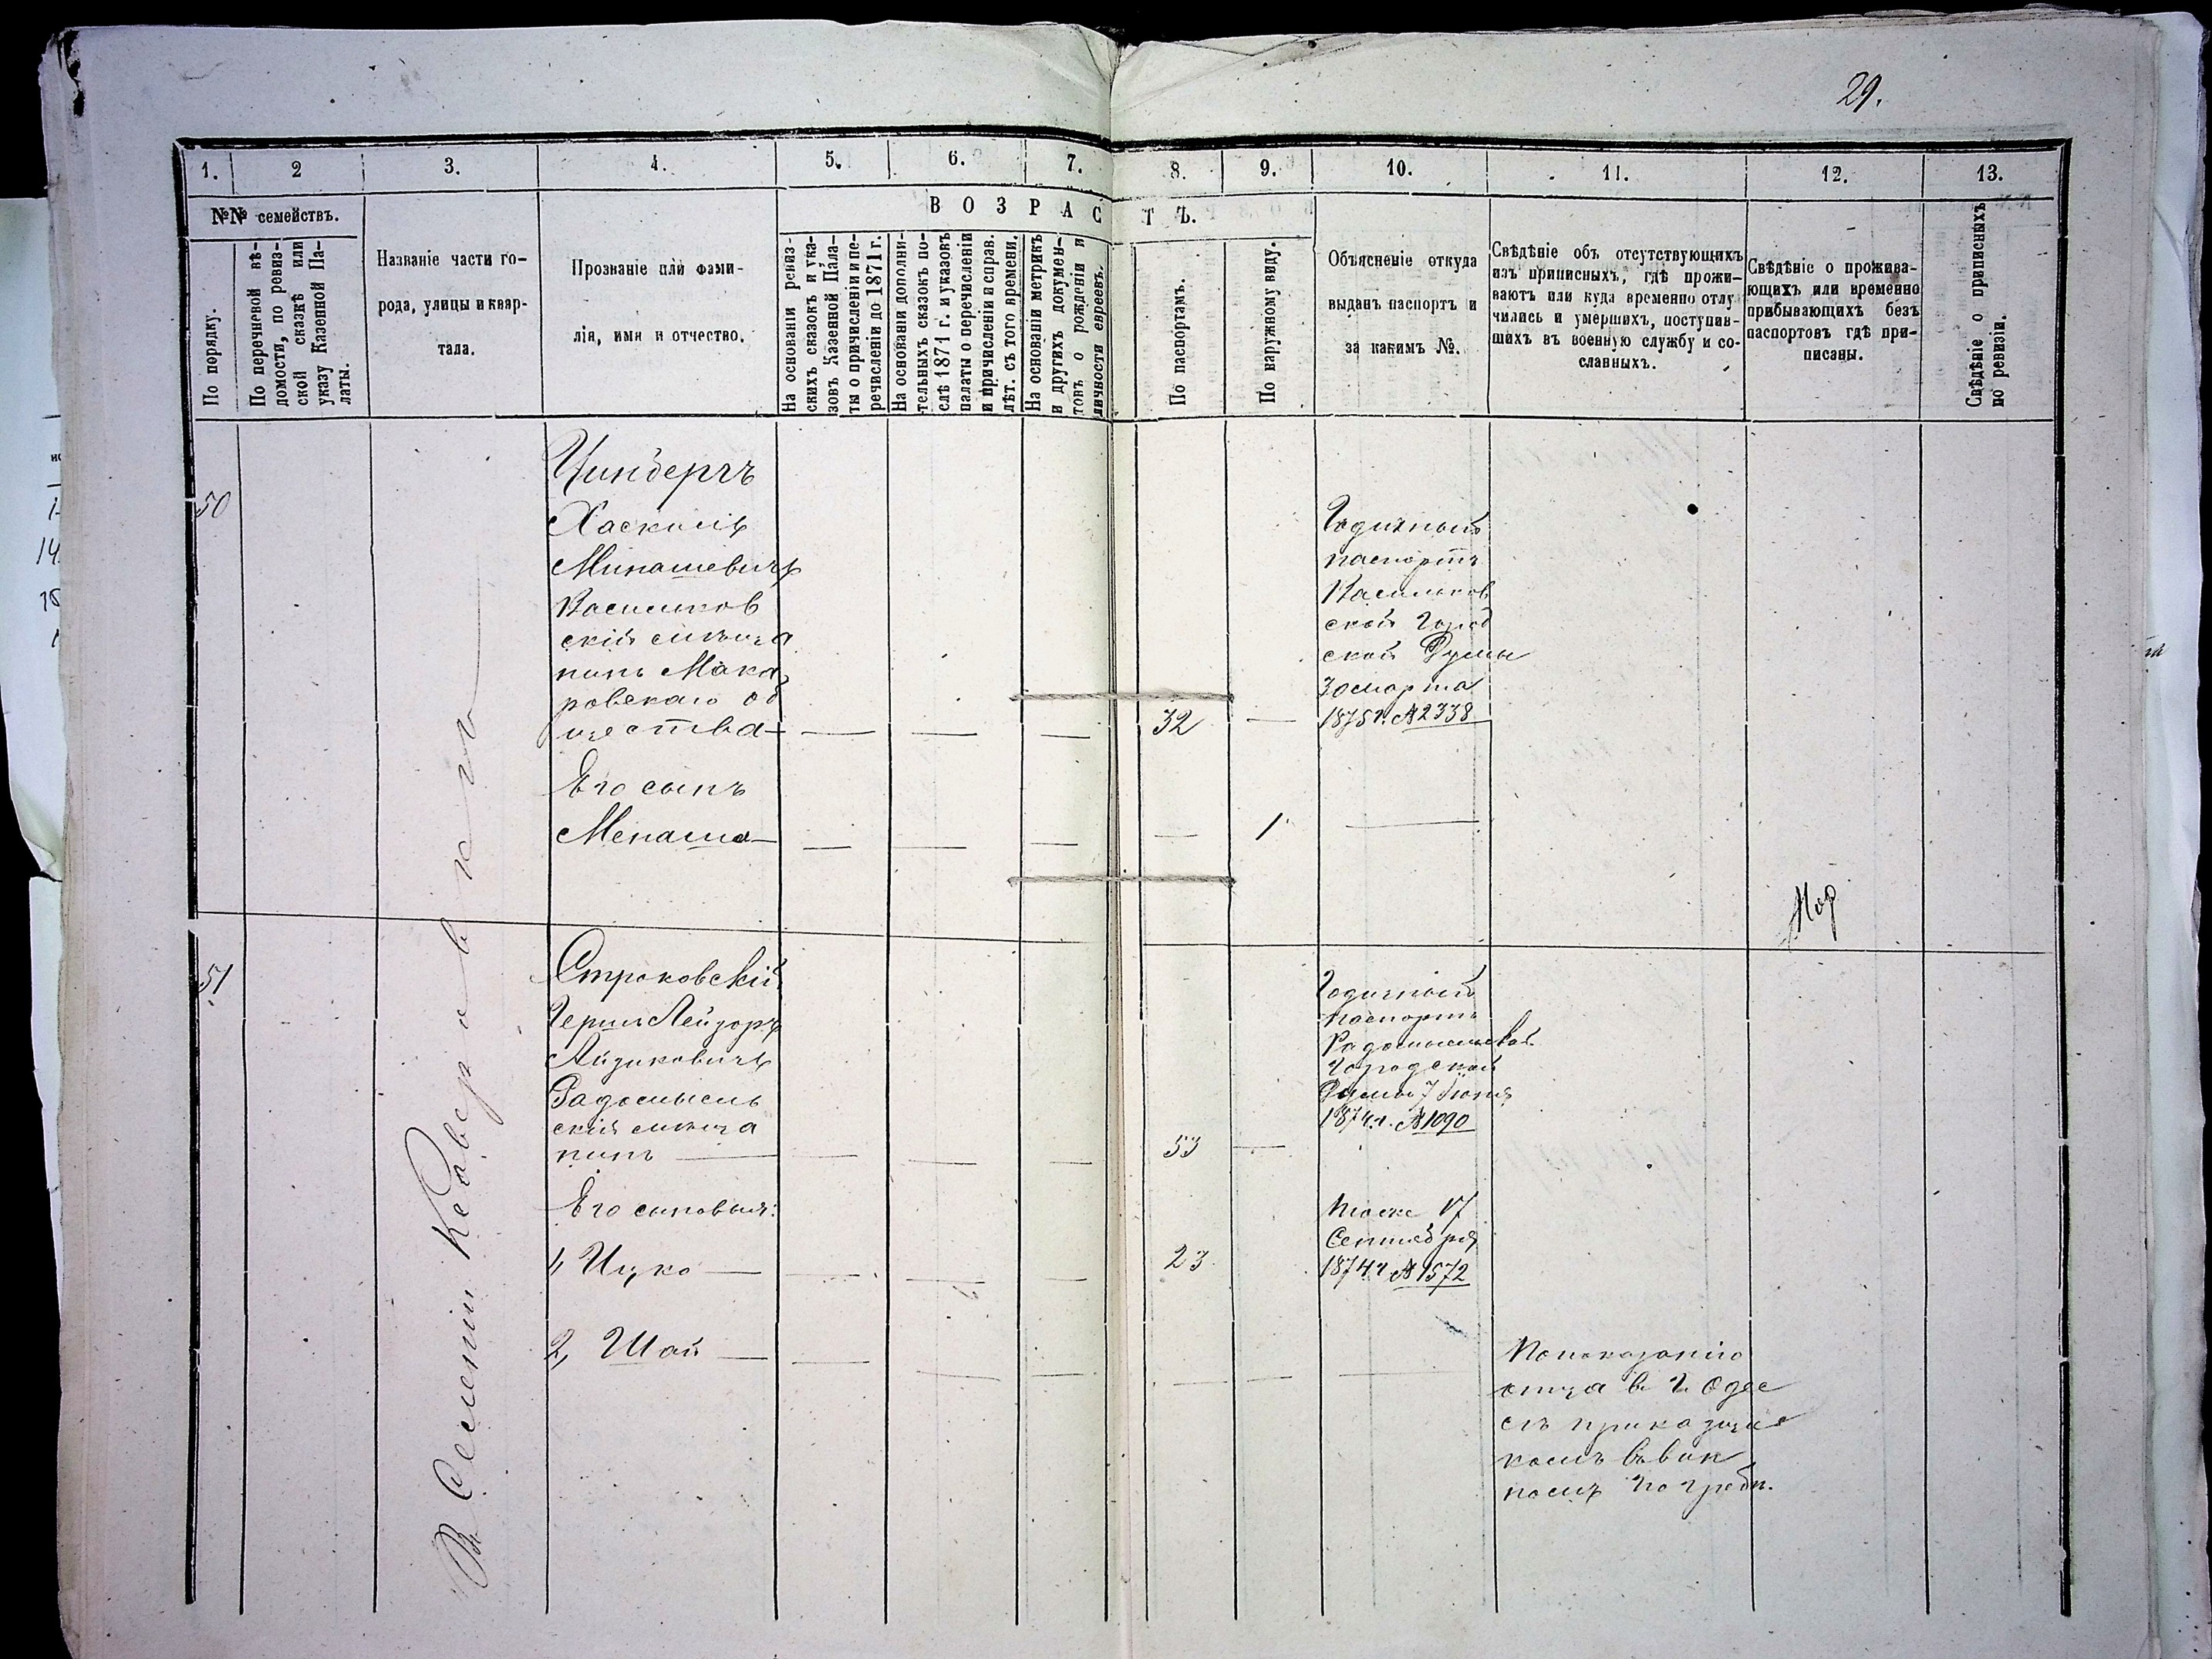 29.
1.
2
3.
4.
5.
6.
7.
8.
9.
10.
11.
12.
13.
№№ семействъ.
По порядку.
По перечневой вѣ-
домости, по ревиз-
ской сказкѣ или
указу Казенной Па-
латы.
Названіе части го-
рода, улицы и квар-
тала.
Прозваніе или фами-
лія, имя и отчество.
ВОЗРАСТЪ.
На основаніи ревиз-
скихъ сказокъ и ука-
зовъ Казенной Пала-
ты о причисленіи и пе-
речисленіи до 1871 г.
На основаніи дополни-
тельныхъ сказокъ по-
слѣ 1871 г. и указовъ
палаты о перечисленіи
и причисленіи и справ.
лѣт. съ того времени.
На основаніи метрикъ
и другихъ докумен-
товъ о рожденіи и
личности евреевъ.
По паспортамъ.
По наружному виду.
Объясненіе откуда
выданъ паспортъ и
за какимъ №.
Свѣдѣніе объ отсутствующихъ
изъ приписныхъ, гдѣ прожи-
ваютъ или куда временно отлу
чились и умершихъ, поступив-
шихъ въ военную службу и со-
сланныхъ.
Свѣдѣніе о прожива-
ющихъ или временно
прибывающихъ безъ
паспортовъ гдѣ при-
писаны.
Свѣдѣніе о приписныхъ
по ревизіи.
Въ Селеніи
50
Цинбергъ
Хаскель
Минашевичъ
Васильков
скій мѣща
нинъ Мака
ровскаго об
щества —
32
Годичный
паспортъ
Васильков
ской Город
ской Думы
30 марта
1875 г. №2338
Его сынъ
Менаша —
1
51
Строковскій
Герш Лейзоръ
Айзиковичъ
Радомысль
скій мѣща
нинъ —
53
Годичный
паспортъ
Радомысльской
Городской
Думы 7 Іюня
1874 г. №1090
Его сыновья:
1, Ицко —
23
Тоже 17
Сентября
1874 г. №1572
2, Шай —
По показанію
отца в г. Одес
съ прикащи
комъ въ вин
номъ погребѣ.